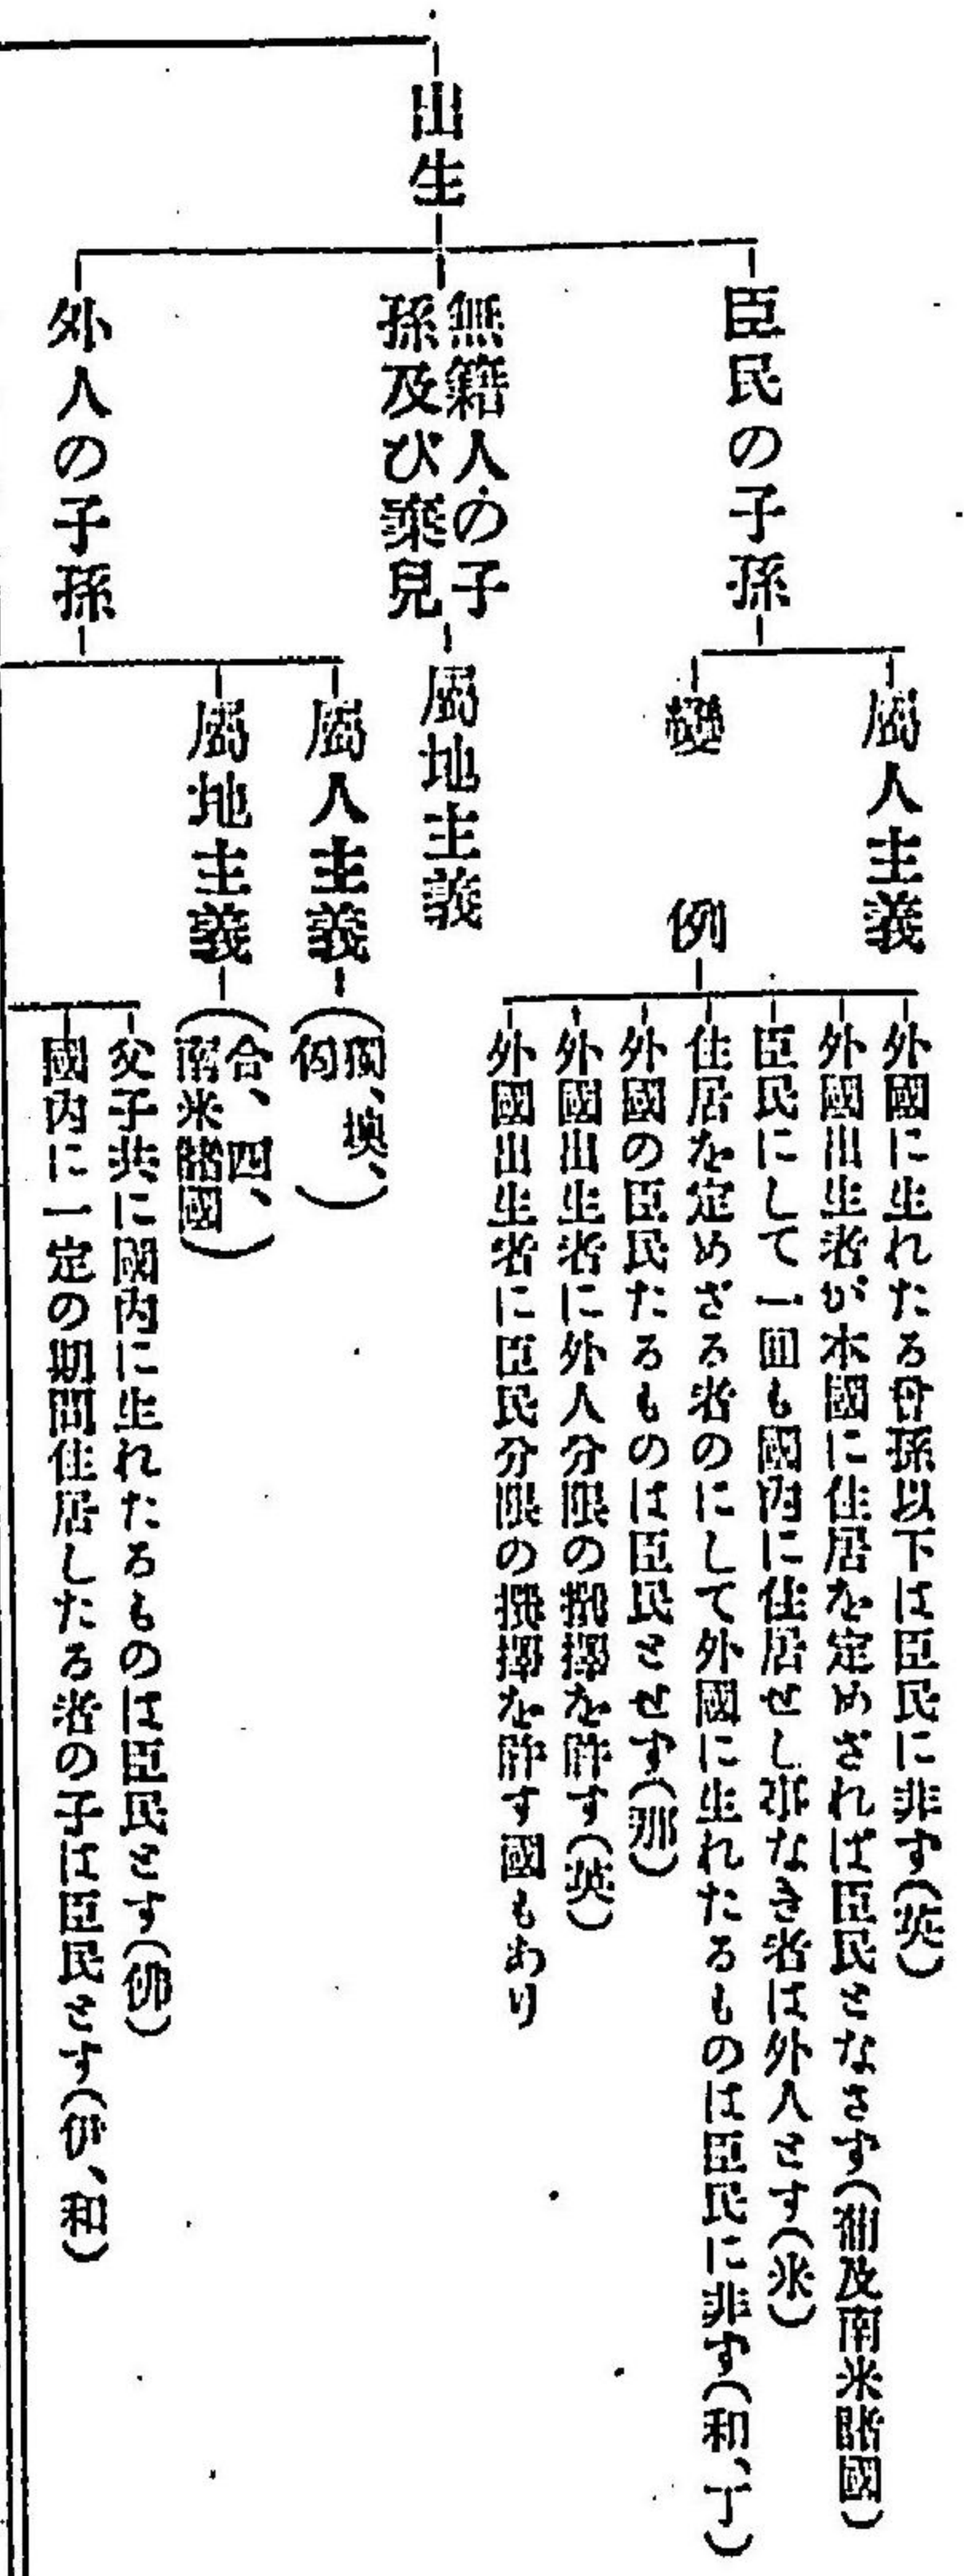 出生
臣民の子孫
屬人主義
變例
外國に生れたる曾孫以下は臣民に非ず(英)
外國出生者が本國に住居を定めざれば臣民となさず(葡及南米諸國)
臣民にして一回も國內に住居せし事なき者は外人とす(米)
住居を定めざる者のにして外國に生れたるものは臣民に非ず(和、丁)
外國の臣民たるものは臣民とせず(那)
外國出生者に外人分限の撰擇を許す(英)
外國出生者に臣民分限の撰擇を許す國もあり
無籍人の子
孫及び棄兒
屬地主義
外人の子孫
屬人主義
(獨、墺、
匈)
屬地主義
(合、四、
南米諸國)
父子共に國內に生れたるものは臣民とす(佛)
國內に一定の期間住居したる者の子は臣民とす(伊、和)